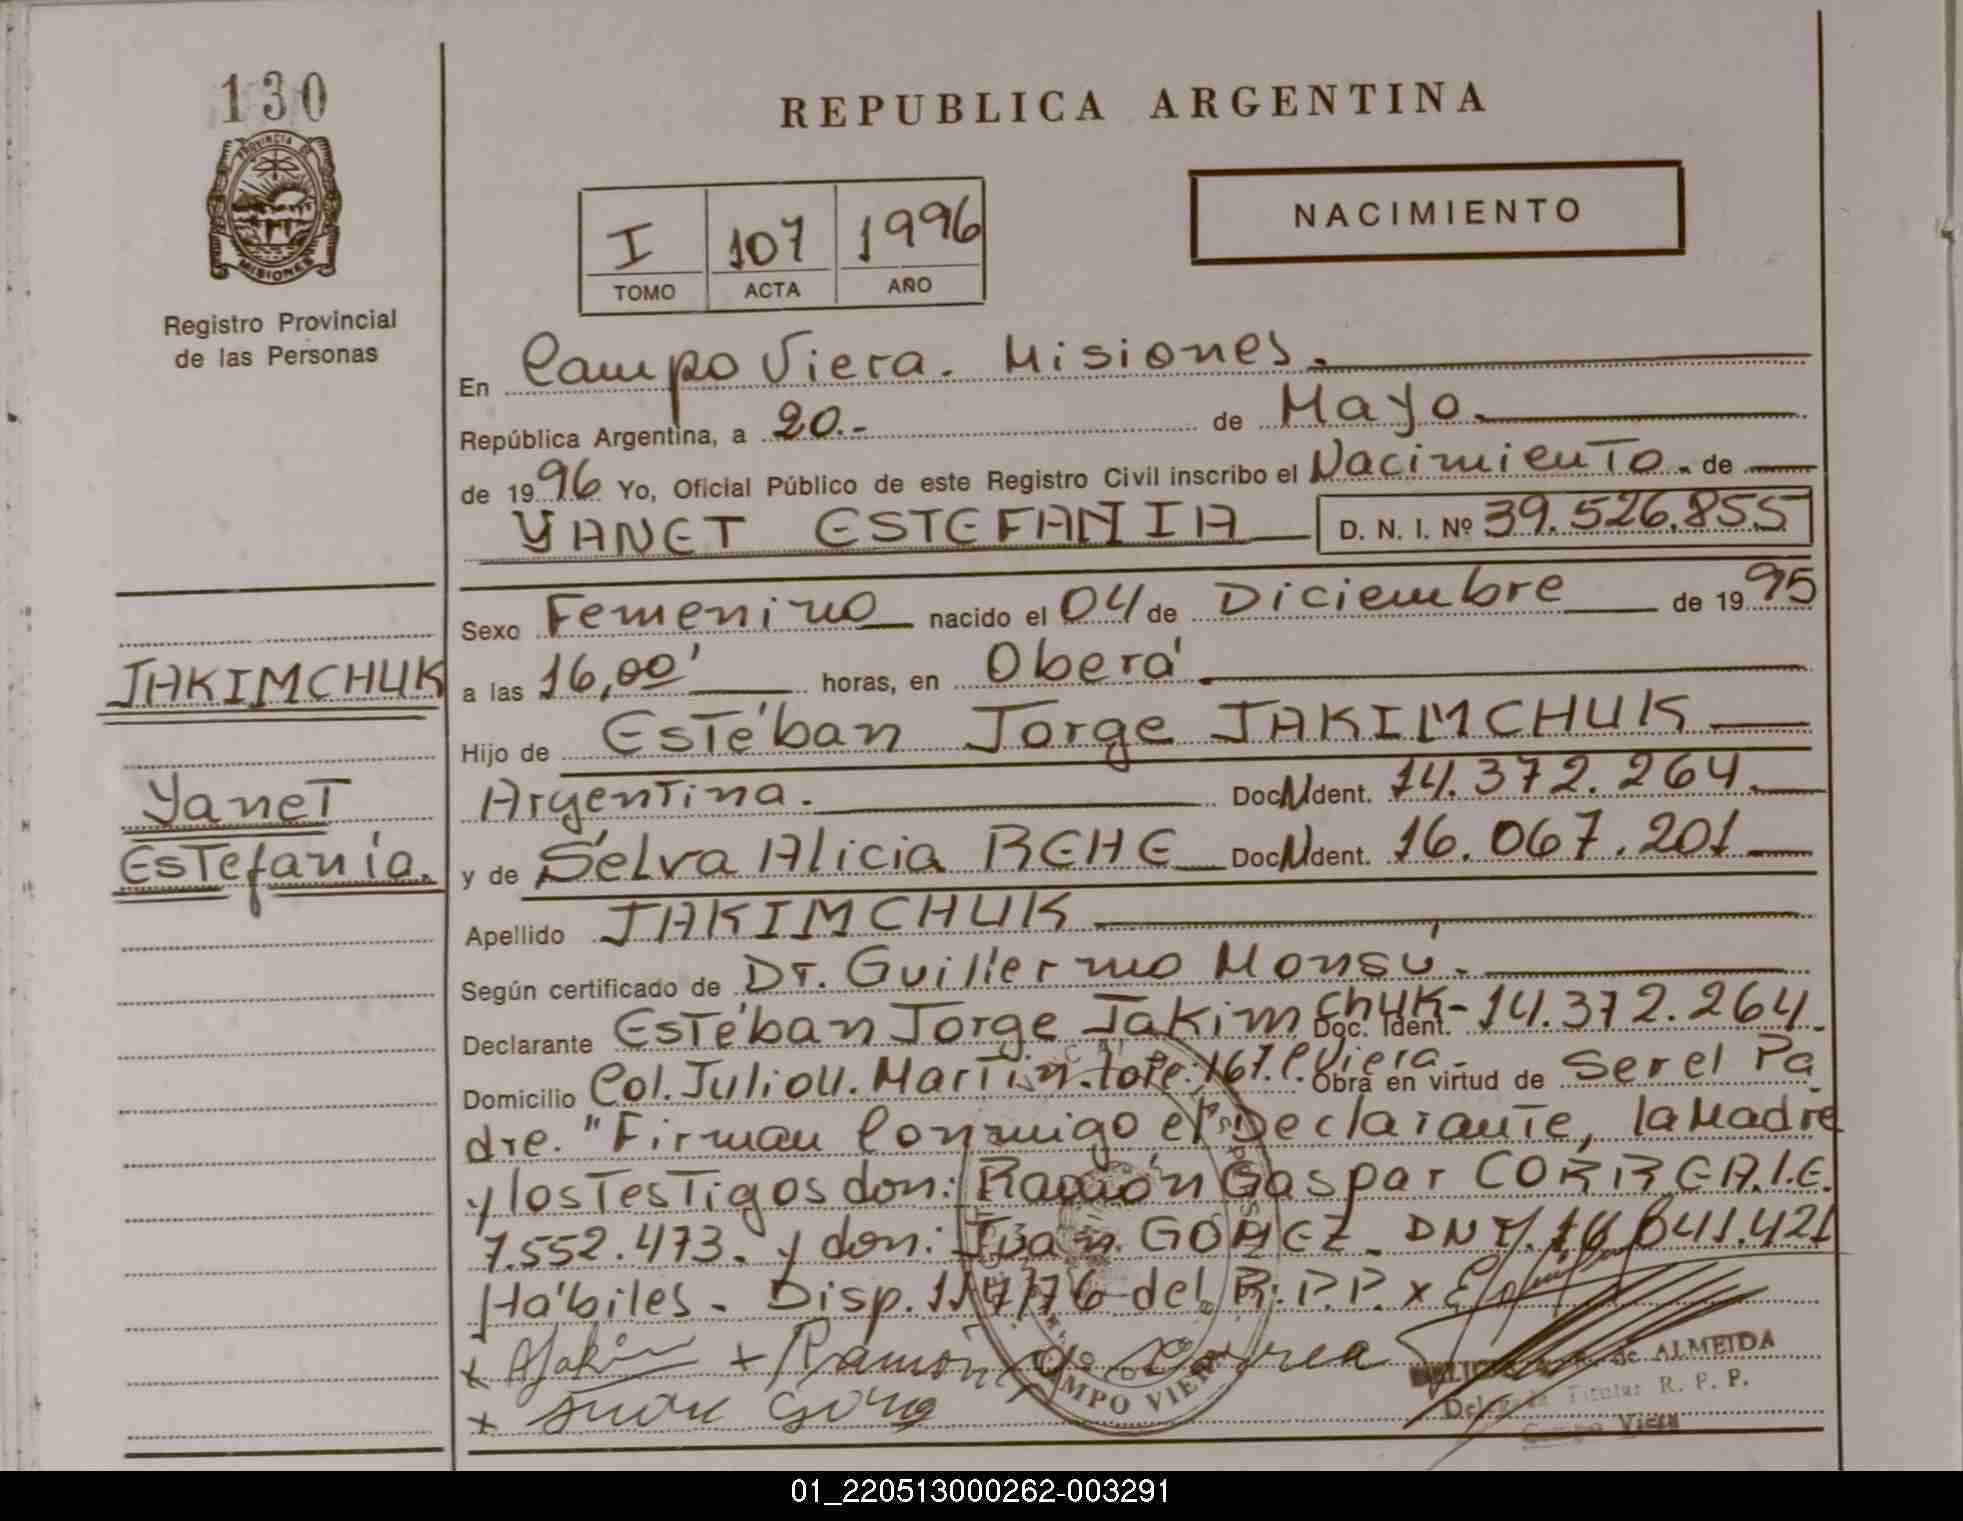 130
PROVINCIA DE
MISIONES
Registro Provincial
de las Personas
REPUBLICA ARGENTINA
NACIMIENTO
I 107 1996
TOMO ACTA AÑO
En Campo Viera. Misiones.
República Argentina, a 20.- de Mayo.
de 1996 Yo, Oficial Público de este Registro Civil inscribo el Nacimiento. de
YANET ESTEFANIA D. N. I. Nº 39.526.855
Sexo Femenino nacido el 04 de Diciembre de 1995
a las 16,00' horas, en Oberá
JAKIMCHUK
Hijo de Estéban Jorge JAKIMCHUK
Yanet
Estefanía.
Argentina. Doc. N Ident. 14.372.264.
y de Selva Alicia REHE Doc. N Ident. 16.067.201
Apellido JAKIMCHUK
Según certificado de Dr. Guillermo Monsú.
Declarante Estéban Jorge Jakimchuk- Doc. Ident. 14.372.264.
Domicilio Col. Julio U. Martin. lote: 167. C. Viera. Obra en virtud de Ser el Pa
dre. "Firman Conmigo el Declarante, la Madre
y los Testigos don: Ramón Gaspar CORREA. I.E.
7.552.473. y don: Juan GOMEZ. DNI. 16.841.421
Hábiles. Disp. 117/76 del R.P.P. x
x x Ramon G Correa
x Juan Gomez
de ALMEIDA
Delegada Titular R. P. P.
Campo Viera
CAMPO VIERA
01_220513000262-003291